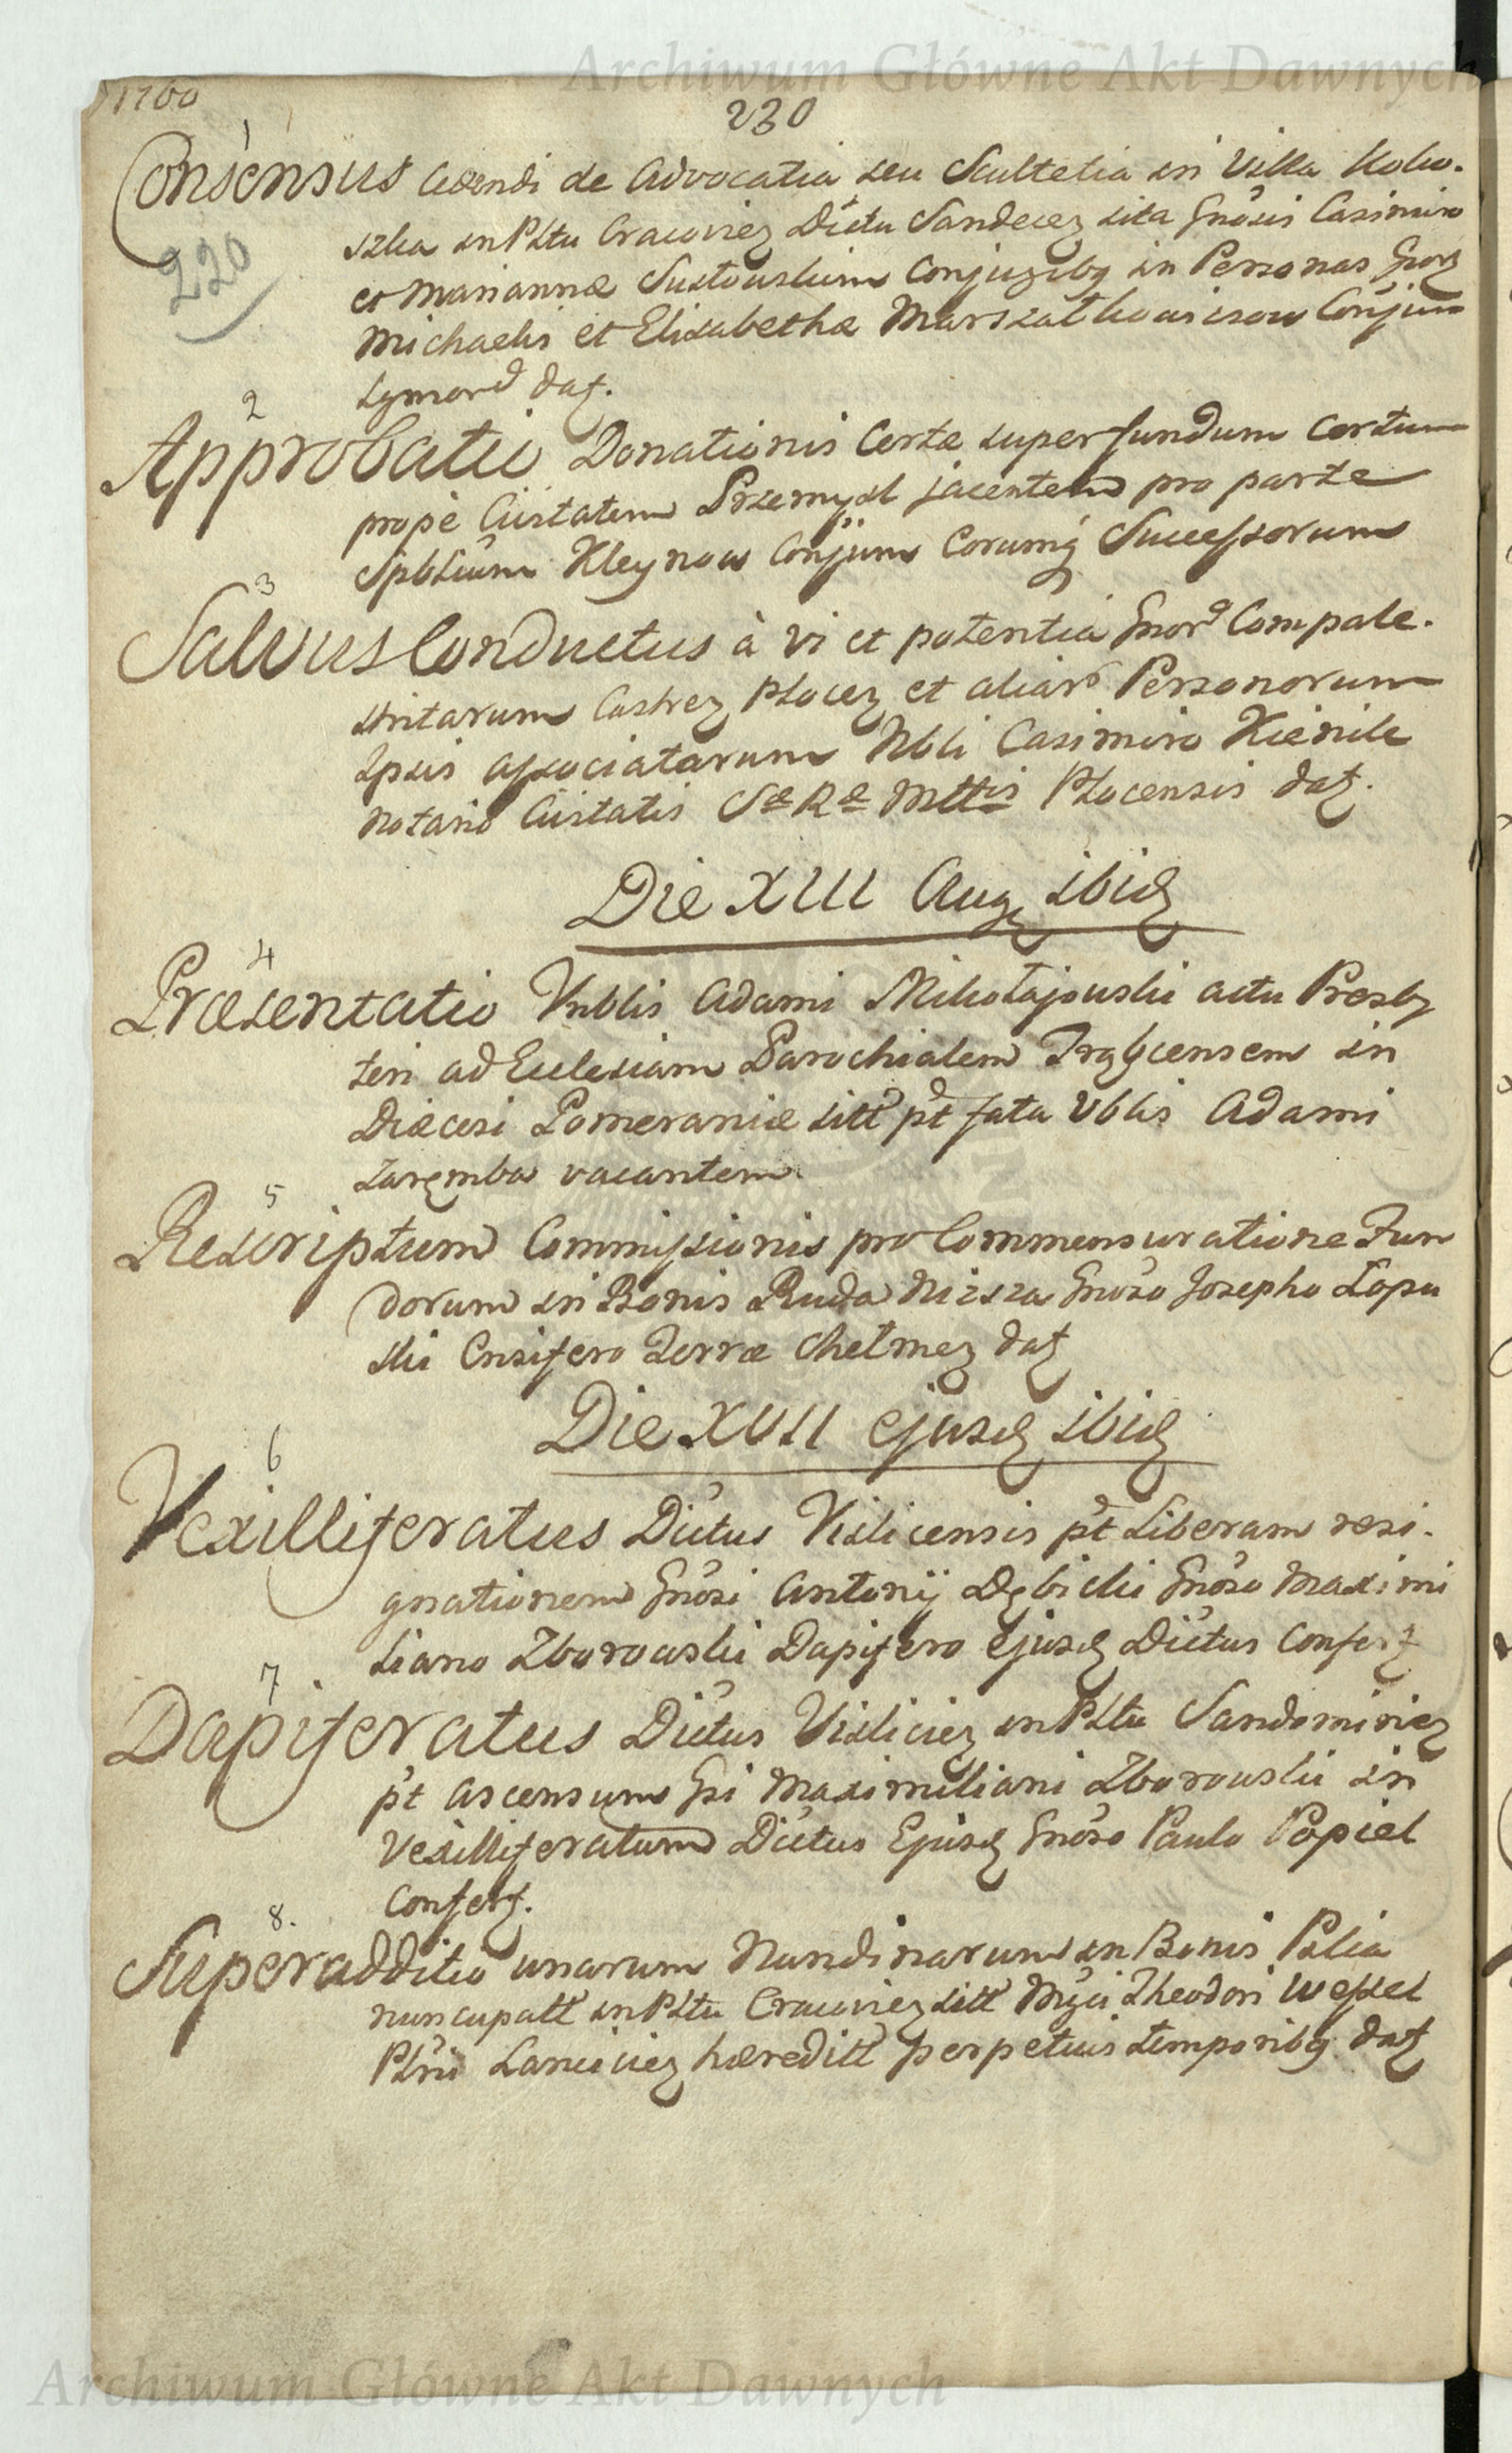 Archiwum Główne Akt Dawnych
1760
230
1
Consensus cedendi de Advocatia seu Scultetia in Villa Kobo-
szka in Pltu Cracovieȝ Dictu Sandeceȝ sita Gnosis Casimiro
220
et Marianna Conjugibg in Personas Gnor
Michaelis et Elisabethæ Marszałkowiczow Conjum
Lgmord daȝ.
2
Approbatio Donationis Certæ super fundum certum
prope Civitatem Przemysl jacentem pro parte
Spblium Kleynow Conjum Eorumq Successorum
3
Salvus Conductus à vi et potentia Gnord Compale-
stritarum Castreȝ Ploceȝ et aliard Personorum
Ipsis associatarum Nbli Casimiro Kienile
Notario Civitatis Sæ Ræ Mttis Plocensis daȝ.
Die XIII Augȝ ibidȝ
4
Præsentatio Vnblis Adami Mikołajouski actu Presby
teri ad Ecclesiam Parochialem Trąbcensem in
Diæcesi Pomeraniæ sitt pt fata Vblis Adami
Zarembа vacantem
5
Rescriptum Commissionis pro Commensuratione Fun
dorum in Bonis Ruda Nizsza Gnoso Josepho Łopu
ski Ensifero Terræ Chełmeȝ daȝ
Die XVII ejusdȝ ibidȝ
6
Vexilliferatus Dictus Vislicensis pt Liberam resi-
gnationem Gnosi Antonij Dębicki Gnoso Maximi
liano Zborowski Dapifero ejusdȝ Dictus Confertȝ
7
Dapiferatus Dictus Vislicieȝ in Pltu Sandomirieȝ
pt ascensum Gsi Maximiliani Zborouski in
Vexilliferatum Dictus Ejusdȝ Gnoso Paulo Popiel
Confertȝ.
8.
Superadditio unarum Nundinarum in Bonis Pilia
nuncupatt in Pltu Cracovieȝ sitt Mgci Theodori Wessel
Pltni Lancicieȝ hæreditt perpetuis temporibg daȝ
Archiwum Główne Akt Dawnych